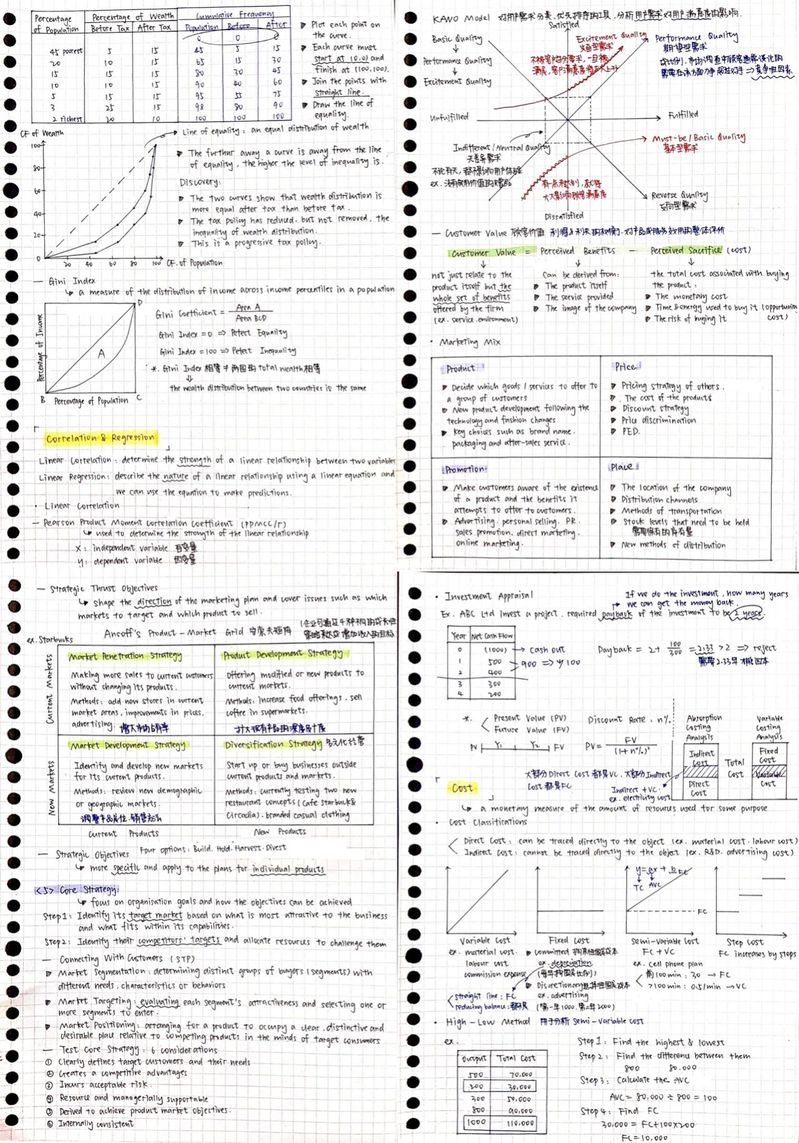 Percentage of Population
Percentage of Wealth
Before Tax
After Tax
Cumulative Frequency
Population
Before
After
0 0 0
45 poorest 5 15 45 5 15
20 10 15 65 15 30
15 15 15 80 30 45
10 10 15 90 40 60
5 15 15 95 55 75
3 25 15 98 80 90
2 richest 20 10 100 100 100
Plot each point on the curve.
Each curve must start at (0,0) and finish at (100,100).
Join the points with straight line.
Draw the line of equality.
CF. of Wealth
Line of equality: an equal distribution of wealth
The further away a curve is away from the line of equality, the higher the level of inequality is.
Discovery:
The two curves show that wealth distribution is more equal after tax than before tax.
The tax policy has reduced, but not removed, the inequality of wealth distribution.
This is a progressive tax policy.
CF. of Population
— Gini Index
a measure of the distribution of income across income percentiles in a population
Percentage of Income
Percentage of Population
A
B
C
D
Gini Coefficient = Area A / Area BCD
Gini Index = 0 => Pefect Equality
Gini Index = 100 => Pefect Inequality
*. Gini Index 相等 ≠ 两国的 total wealth 相等
the wealth distribution between two countries is the same
Correlation & Regression
Linear Correlation: determine the strength of a linear relationship between two variables
Linear Regression: describe the nature of a linear relationship using a linear equation and
we can use the equation to make predictions.
· Linear Correlation
— Pearson Product Moment Correlation Coefficient (PPMCC/r)
used to determine the strength of the linear relationship
x: independent variable 自变量
y: dependent variable 因变量
KANO Model 对用户需求分类、优先排序的工具,分析用户需求对用户满意度的影响.
Satisfied
Basic Quality
Performance Quality
Excitement Quality
Excitement Quality
兴奋型需求
Performance Quality
期望型需求
Unfulfilled
Fulfilled
Indifferent / Neutral Quality
无差异需求
Must-be / Basic Quality
基本型需求
Reverse Quality
反向型需求
Dissatisfied
— Customer Value 顾客价值
Customer Value = Perceived Benefits — Perceived Sacrifice (cost)
not just relate to the product itself but the whole set of benefits offered by the firm
(ex. service environment)
Can be derived from:
The product itself
The service provided
The image of the company
the total cost associated with buying the product:
The monetary cost
Time & energy used to buy it (opportunity cost)
The risk of buying it
• Marketing Mix
Product:
Decide which goods / services to offer to a group of customers
New product development following the technology and fashion changes
Key choices such as brand name, packaging and after-sales service.
Price:
Pricing strategy of others.
The cost of the products
Discount strategy
Price discrimination
PED.
Promotion:
Make customers aware of the existence of a product and the benefits it attempts to offer to customers.
Advertising, personal selling, PR, sales promotion, direct marketing, online marketing.
Place:
The location of the company
Distribution channels
Methods of transportation
Stock levels that need to be held
New methods of distribution
— Strategic Thrust Objectives
shape the direction of the marketing plan and cover issues such as which
markets to target and which product to sell.
ex. Starbucks
Ansoff's Product – Market Grid 安索夫矩阵
Current Markets
New Markets
Market Penetration Strategy
Making more sales to current customers without changing its products.
Methods: add new stores in current market areas, improvements in prices, advertising.
Product Development Strategy
Offering modified or new products to current markets.
Methods: increase food offerings, sell coffee in supermarkets.
Market Development Strategy
Identify and develop new markets for its current products.
Methods: review new demographic or geographic markets.
Diversification Strategy 多元化经营
Start up or buy businesses outside current products and markets.
Methods: currently testing two new restaurant concepts (Cafe Starbucks & Circadia), branded casual clothing
Current Products
New Products
— Strategic Objectives Four options: Build. Hold. Harvest. Divest
more specific and apply to the plans for individual products
<5> Core Strategy:
focus on organisation goals and how the objectives can be achieved
Step 1: Identify its target market based on what is most attractive to the business
and what fits within its capabilities.
Step 2: Identify their competitors' targets and allocate resources to challenge them
— Connecting With Customers (STP)
Market Segmentation: determining distinct groups of buyers (segments) with
different needs, characteristics or behaviors
Market Targeting: evaluating each segment's attractiveness and selecting one or
more segments to enter.
Market Positioning: arranging for a product to occupy a clear, distinctive and
desirable place relative to competing products in the minds of target consumers
— Test Core Strategy: 6 considerations
① Clearly defines target customers and their needs
② Creates a competitive advantages
③ Incurs acceptable risk.
④ Resource and managerially supportable
⑤ Derived to achieve product market objectives.
⑥ Internally consistent
• Investment Appraisal
If we do the investment, how many years
we can get the money back.
Ex. ABC Ltd Invest a project, required payback of the investment to be 2 years.
Year Net Cash Flow
0 (1000) → cash out
1 500
2 400
900 => 少100
3 300
4 200
Payback = 2 + 100/300 = 2.33 > 2 => reject
*.
Present Value (PV)
Future Value (FV)
Discount Rate: n%
PV Y1 Y2 FV
PV = FV / (1+n%)²
Absorption Costing Analysis
Variable Costing Analysis
Indirect Cost
Direct Cost
Total Cost
Fixed Cost
Variable Cost
大部分 Direct Cost 都是VC, 大部分 Indirect
Cost 都是FC
Indirect + VC:
ex. electricity cost
Cost
a monetary measure of the amount of resources used for some purpose
• Cost Classifications
Direct Cost: can be traced directly to the object (ex. material cost, labour cost)
Indirect Cost: cannot be traced directly to the object (ex. R&D, advertising cost)
y = ax + b
TC AVC FC
FC
Variable Cost
ex. material cost
labour cost
commission expense
Fixed Cost
Committed
ex. depreciation
Discretionary
ex. advertising
straight line: FC
reducing balance:
Semi-variable Cost
FC + VC
ex. cell phone plan
前100min: 30 → FC
>100min: 0.5/min → VC
Step Cost
FC increases by steps
• High-Low Method 用于分析 Semi-variable cost
ex.
Output Total Cost
500 70.000
200 30.000
300 50.000
800 90.000
1000 110.000
Step 1: Find the highest & lowest
Step 2: Find the difference between them
800 80.000
Step 3: Calculate the AVC
AVC = 80.000 ÷ 800 = 100
Step 4: Find FC
30.000 = FC + 100×200
FC = 10.000